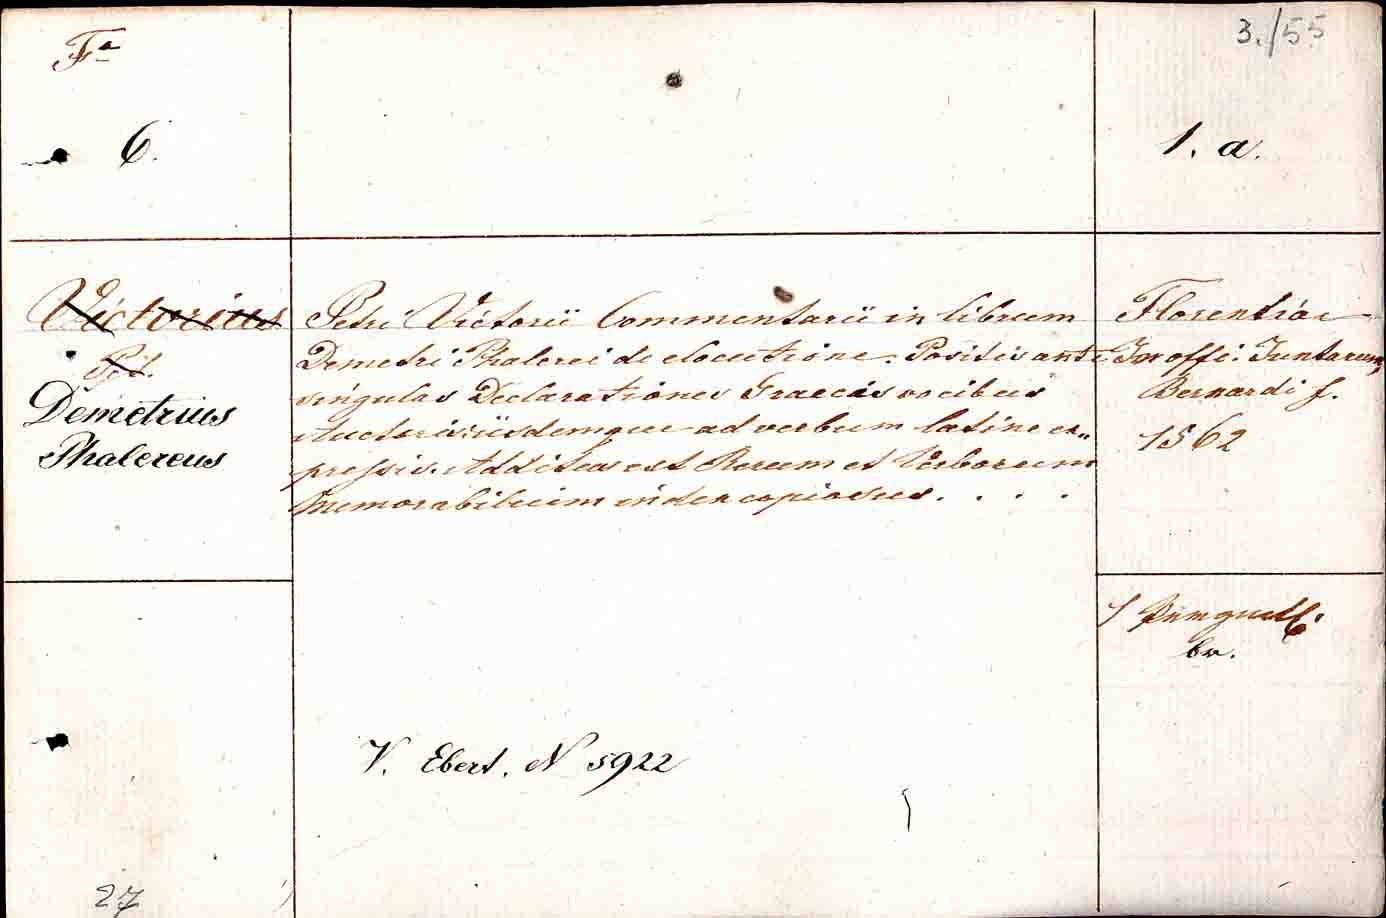 Fª
6.
3./55
1. a.
Victorius
Pet.
Demetrius
Phalereus
Petri Victorii Commentarii in librum
Demetri Phalerei de elocutione. Positis ante
singulas Declarationes Graecis vocibus
Auctoris: iisdemque ad verbum latine ex„
pressis. Additus est Rerum et Verborum
memorabilium index copiosus. . . . .
Florentiae
In offi: Juntarum,
Bernardi f.
1562
br.
V. Ebert. N 5922
27